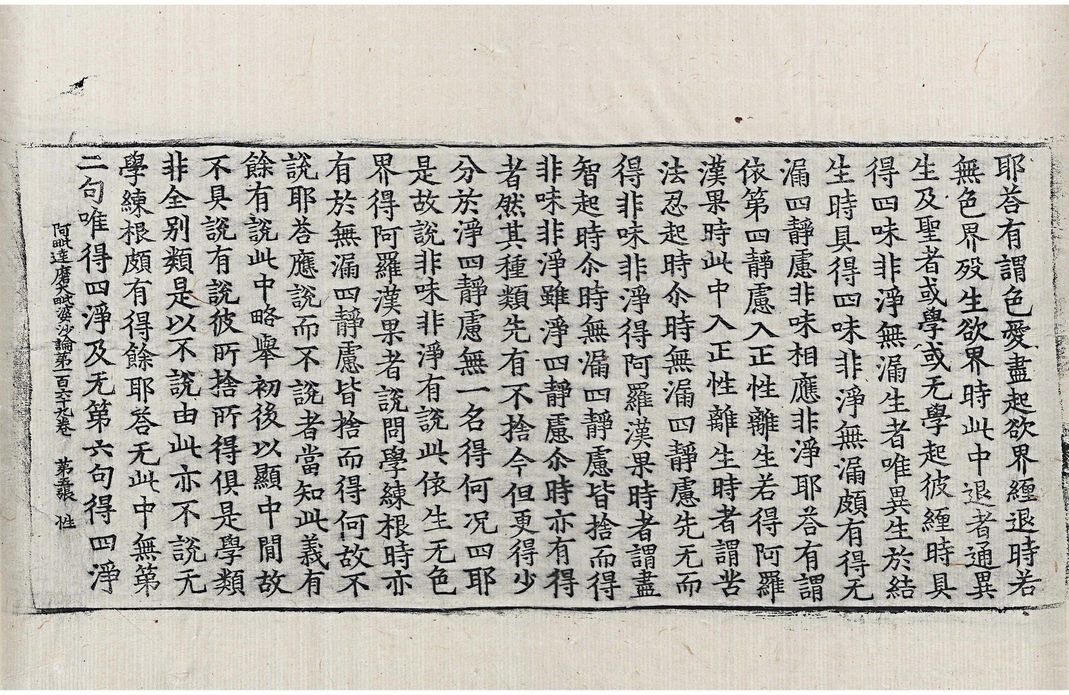 耶荅有謂色愛盡起欲界纏退時若
無色界歿生欲界時此中退者通異
生及聖者或學或无學起彼纏時具
得四味非淨無漏生者唯異生於結
生時具得四味非淨無漏頗有得无
漏四靜慮非味相應非淨耶荅有謂
依第四靜慮入正性離生若得阿羅
漢果時此中入正性離生時者謂苦
法忍起時尒時無漏四靜慮先无而
得非味非淨得阿羅漢果時者謂盡
智起時尒時無漏四靜慮皆捨而得
非味非淨雖淨四靜慮尒時亦有得
者然其種類先有不捨今但更得少
分於淨四靜慮無一名得何況四耶
是故說非味非淨有說此依生无色
界得阿羅漢果者說問學練根時亦
有於無漏四靜慮皆捨而得何故不
說耶荅應說而不說者當知此義有
餘有說此中略舉初後以顯中間故
不具說有說彼所捨所得俱是學類
非全別類是以不說由此亦不說无
學練根頗有得餘耶荅无此中無第
二句唯得四淨及无第六句得四淨
阿毗達磨大毗婆沙論第一百六十九卷 第五張 性